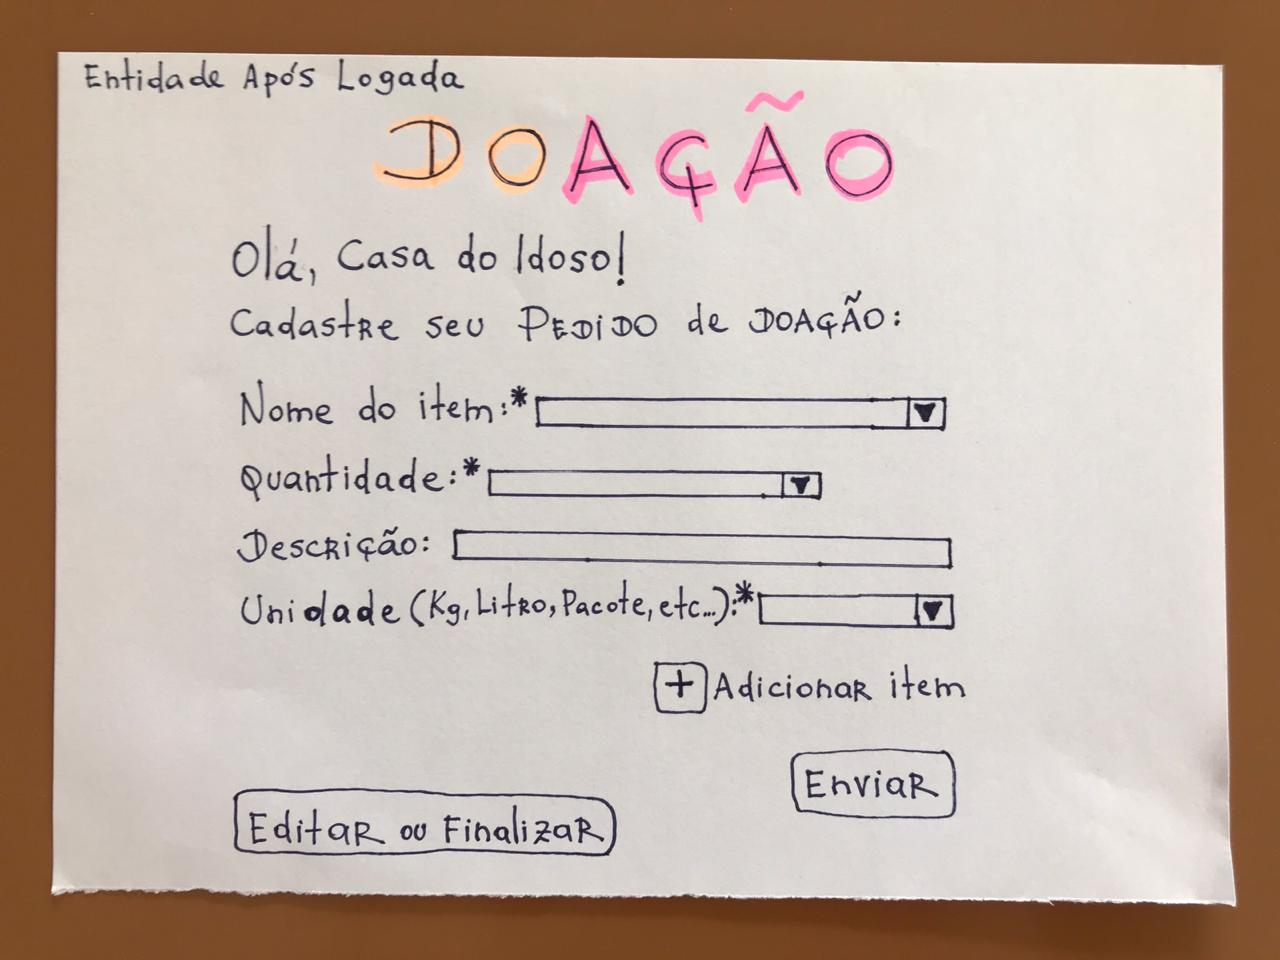 Entidade Após Logada
DOAÇÃO
Olá, Casa do Idoso!
Cadastre seu PEDIDO de DOAÇÃO:
Nome do item:*
Quantidade:*
Descrição:
Unidade (Kg, Litro, Pacote, etc...):*
+ Adicionar item
Enviar
Editar ou Finalizar